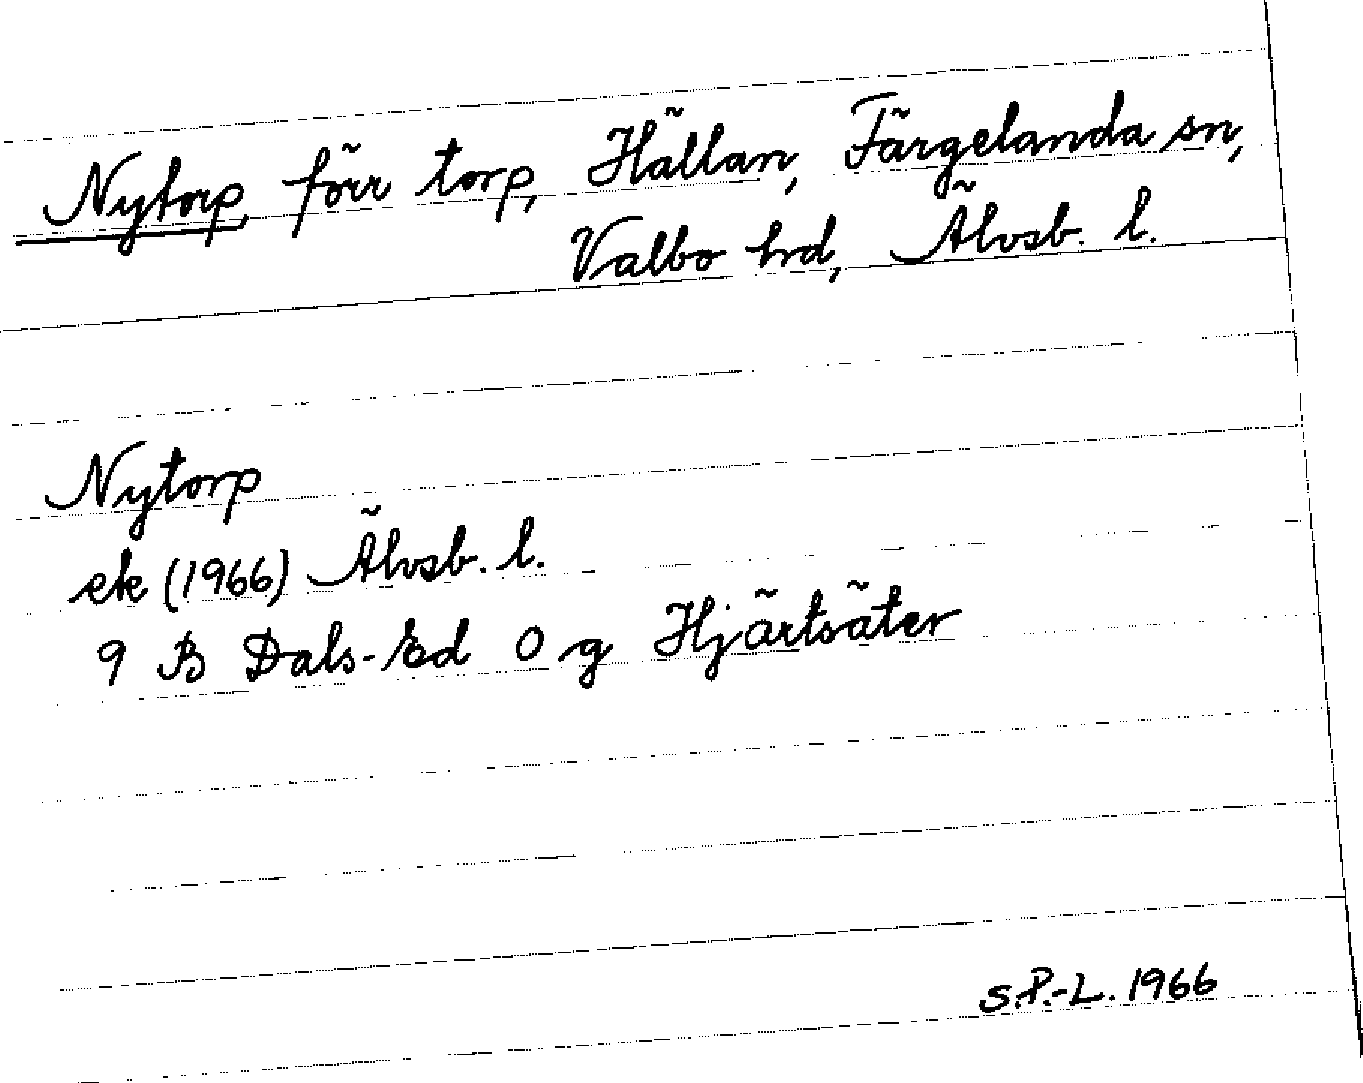 Nytorp, förr torp, Hällan, Färgelanda sn,
Valbo hrd, Älvsb. l.
Nytorp
ek (1966) Älvsb. l.
9 B Dals-Ed 0 g Hjärtsäter
S.P.-L. 1966